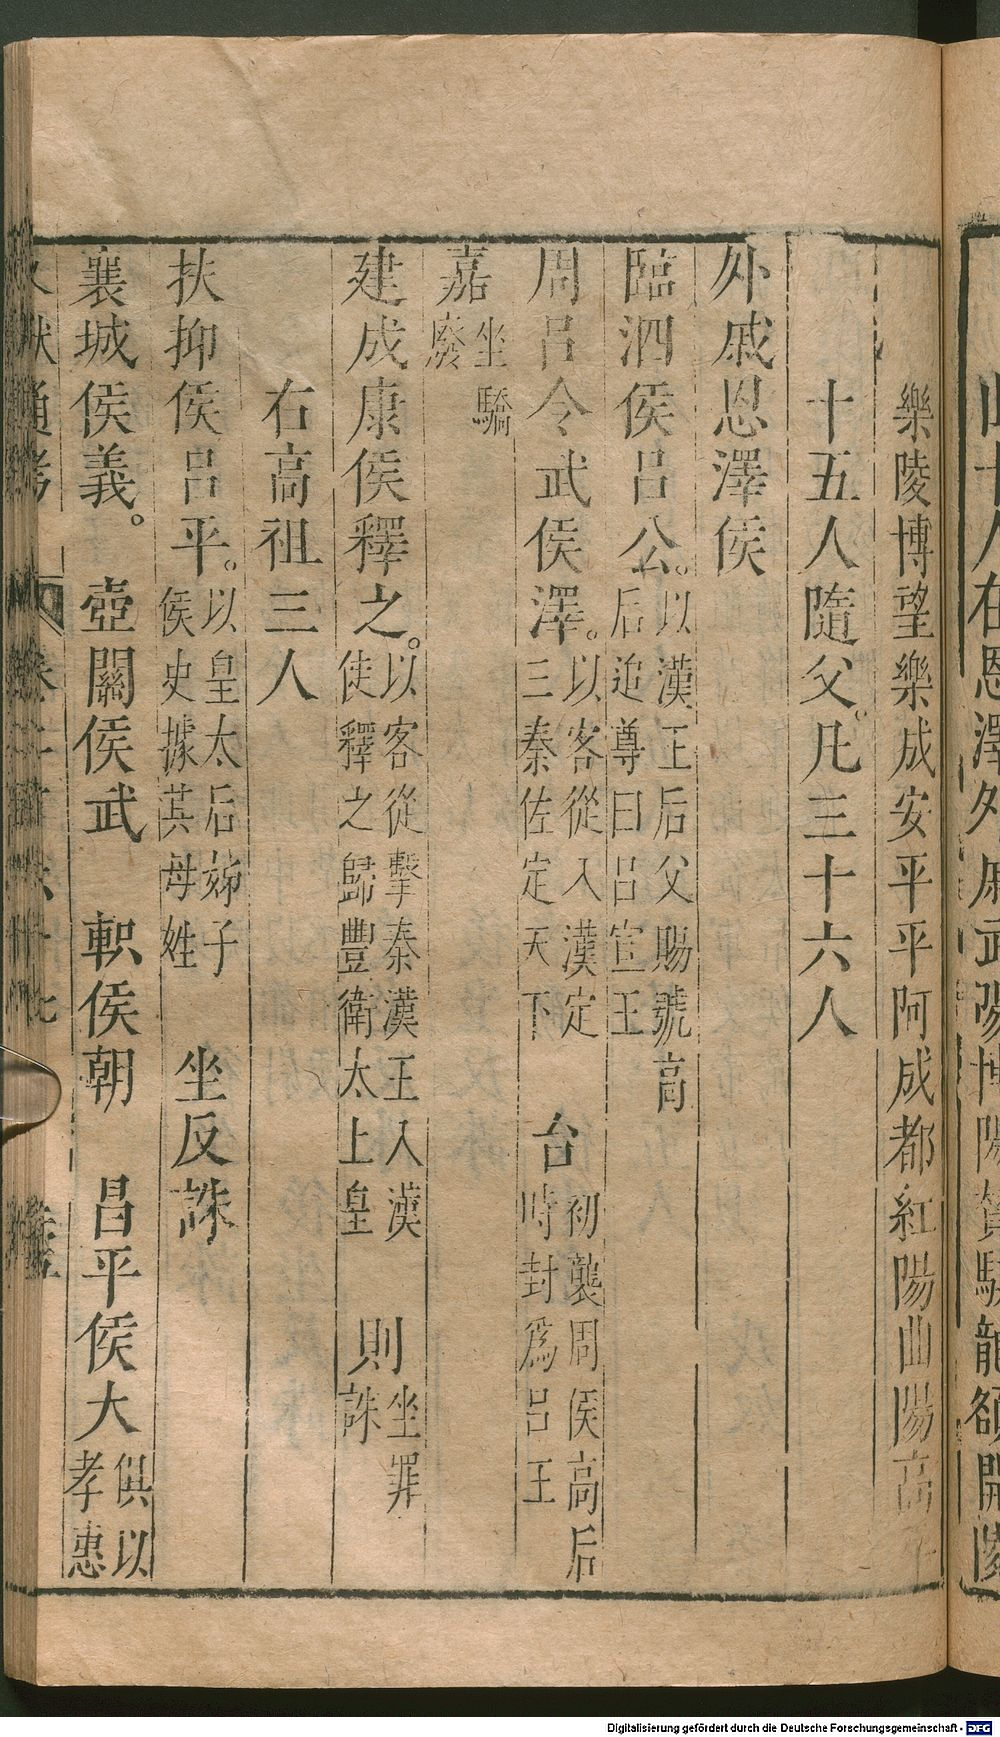 樂陵博望樂成安平平阿成都紅陽曲陽高平
十五人隨父。凡三十六人
外戚恩澤侯
臨泗侯呂公。以漢王后父賜號高后追尊曰呂宣王
周呂令武侯澤。以客從入漢定三秦佐定天下 台初襲周侯高后時封爲呂王
嘉坐驕廢
建成康侯釋之。以客從擊秦漢王入漢使釋之歸豐衛太上皇 則坐罪誅
右高祖三人
扶抑侯呂平。以皇太后姊子侯史據其母姓 坐反誅
襄城侯義。 壺關侯武 軹侯朝 昌平侯大俱以孝惠
Digitalisierung gefördert durch die Deutsche Forschungsgemeinschaft - DFG